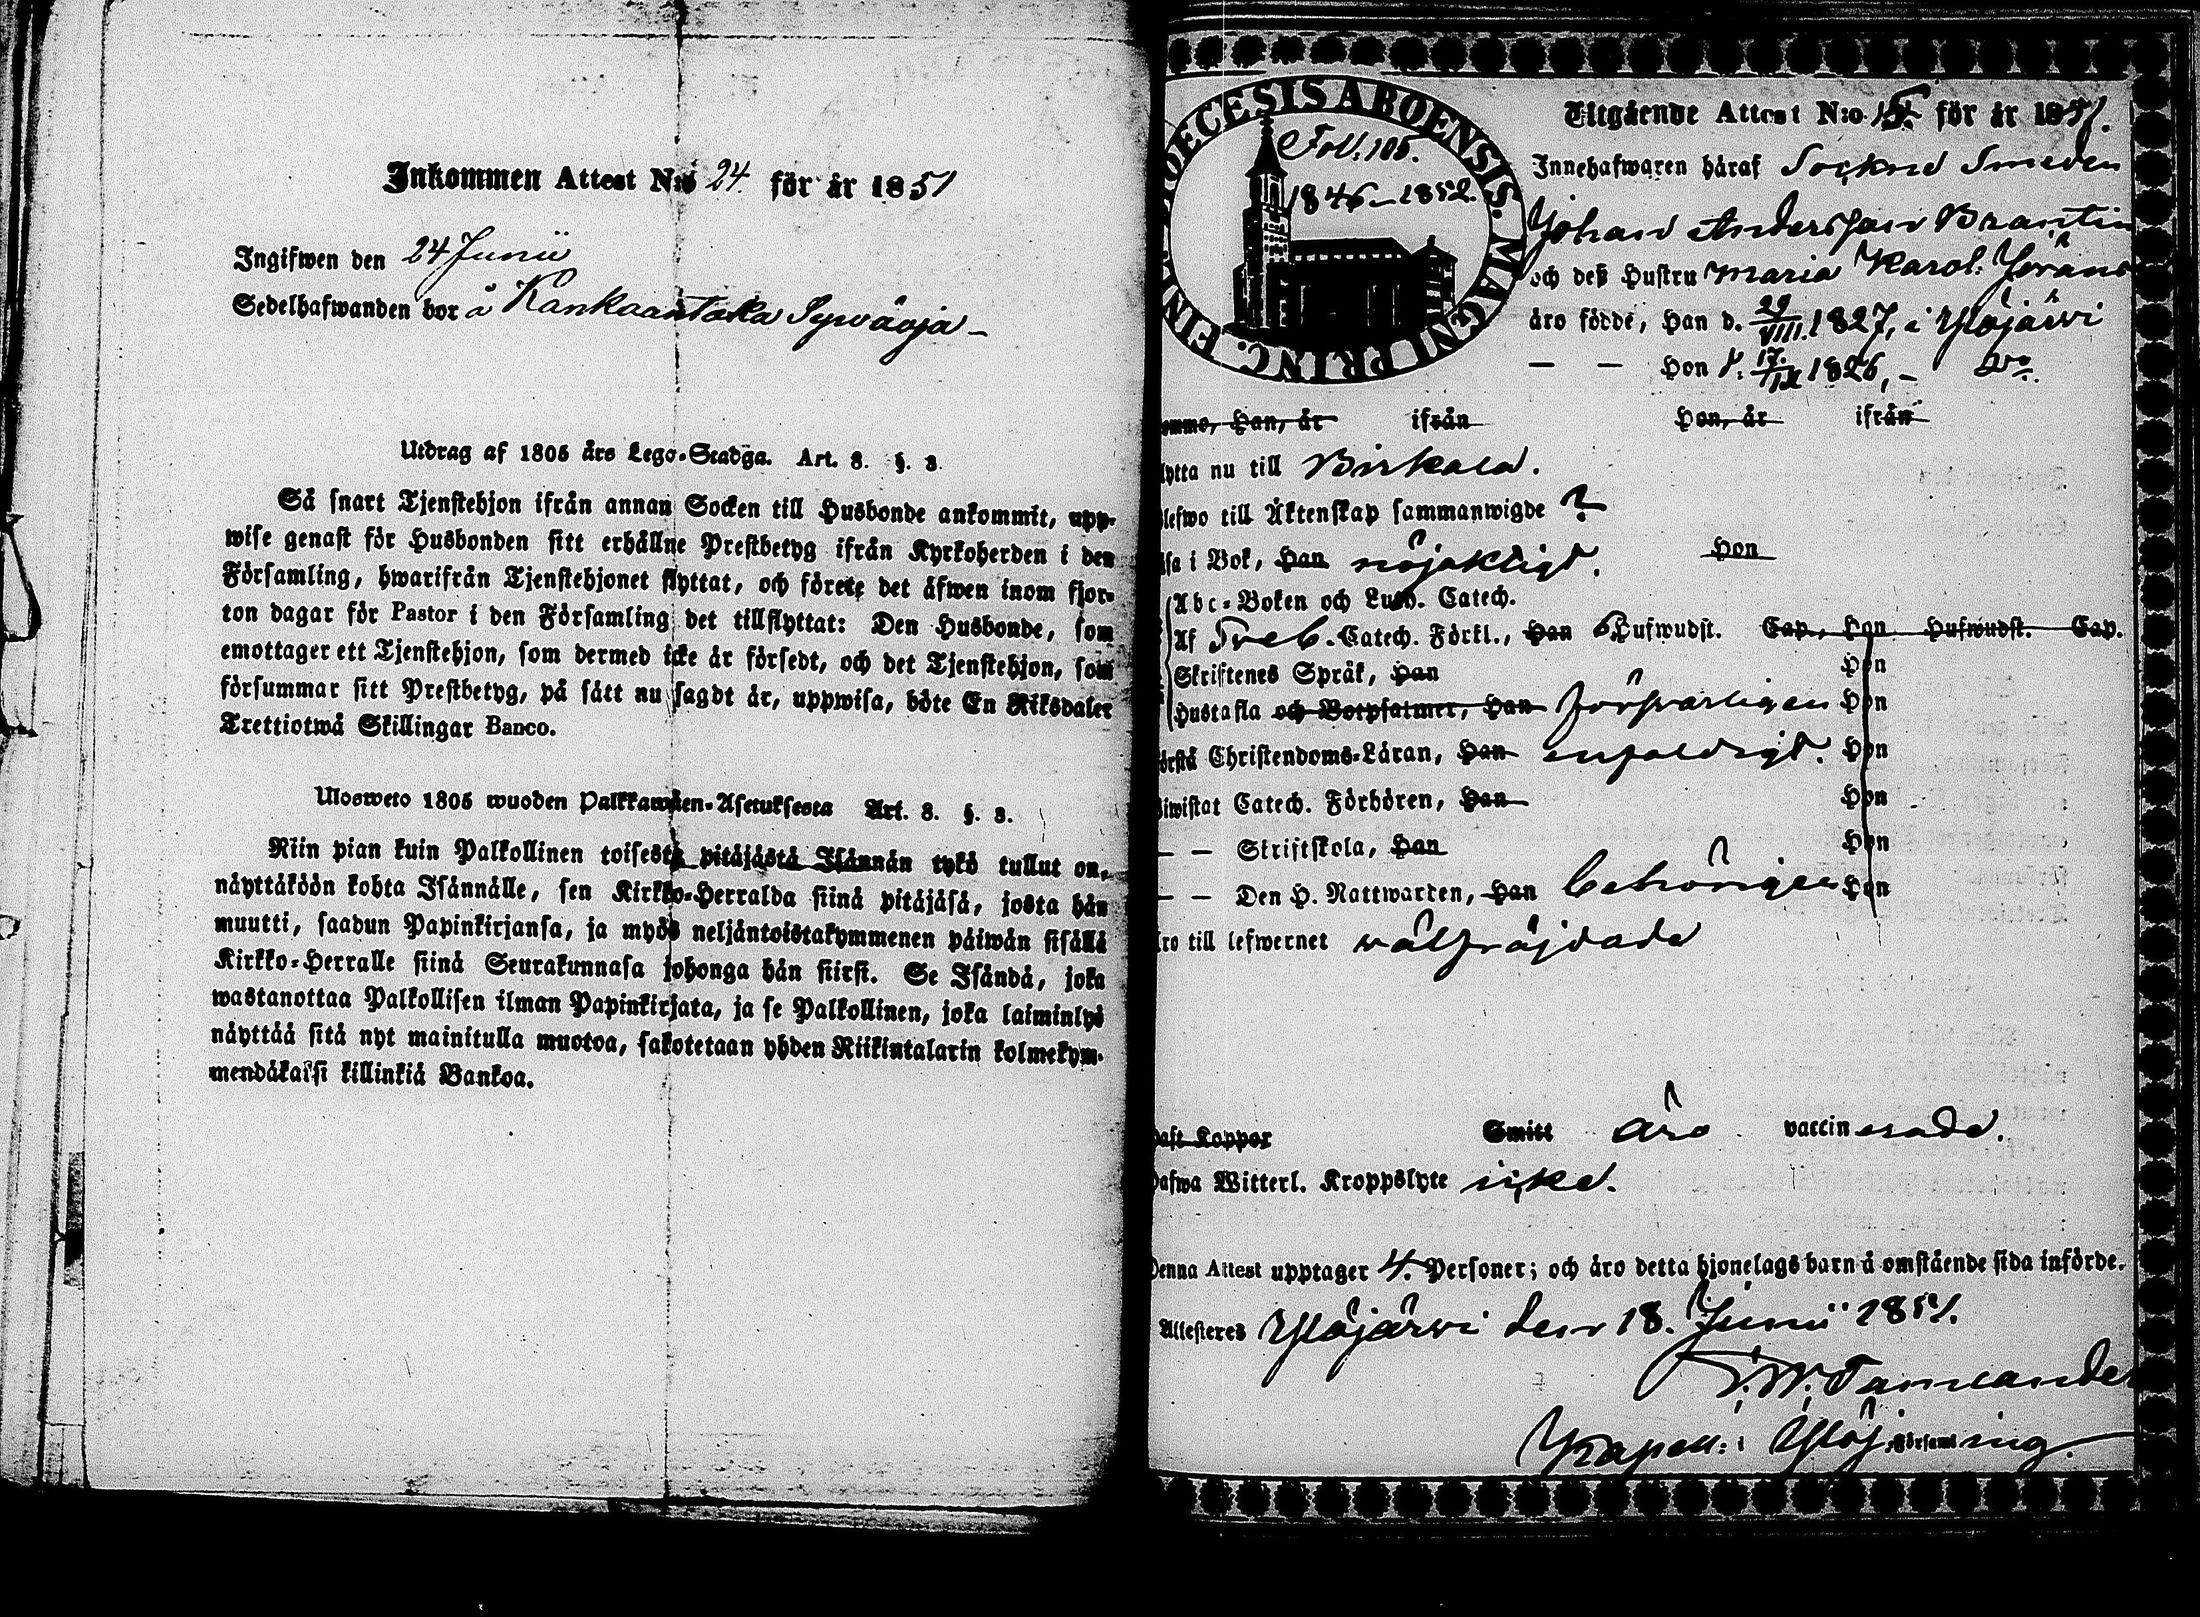 Inkommen Attest N:o 24 för år 1851
Ingifwen den 24 Junii
Sedelhafwanden bor å Kankaantaka Sywäoja
Utdrag af 1805 års Lego-Stadga. Art. 8. §. 3.
Så snart Tjenstehjon ifrån annan Socken till Husbonde ankommit, upp-
wise genast för Husbonden sitt erhållne Prestbetyg ifrån Kyrkoherden i den
Församling, hwarifrån Tjenstehjonet flyttat, och förete det äfwen inom fjor-
ton dagar för Pastor i den Församling det tillflyttat: Den Husbonde, som
emottager ett Tjenstehjon, som dermed icke är försedt, och det Tjenstehjon, som
försummar sitt Prestbetyg, på sätt nu sagdt är, uppwisa, böte En Riksdaler
Trettiotwå Skillingar Banco.
Ulosweto 1805 wuoden Palkkawäen-Asetuksesta Art. 8. §. 3.
Niin pian kuin Palkollinen toisesta pitäjästä Isännän tykö tullut on,
näyttäköön kohta Isännälle, sen Kirkko-Herralda siinä pitäjäsä, josta hän
muutti, saadun Papinkirjansa, ja myös neljäntoistakymmenen päiwän sisällä
Kirkko-Herralle siinä Seurakunnasa johonga hän siirsi. Se Isändä, joka
wastanottaa Palkollisen ilman Papinkirjata, ja se Palkollinen, joka laiminlyö
näyttää sitä nyt mainitulla muotoa, sakotetaan yhden Riikintalarin kolmekym-
mendäkaksi killinkiä Bankoa.
DIOECESIS ABOENSIS. MAGNI PRINC. FINL.
Foll: 106.
1846–1852.
Utgående Attest N:o 15. för år 1851.
Innehafwaren häraf Sockne Smeden
Johan Andersson Brantin
och deß Hustru Maria Karol. Jörans
äro födde, Han d. 29/VIII. 1827, i Ylöjärwi
— — Hon d. 17./IX 1826, – do.
komme, Han, år ifrån Hon, år ifrån
flytta nu till Birkala.
blefwo till Äktenskap sammanwigde ?
läsa i Bok, Han nöjaktligt. Hon
Abc-Boken och Luth. Catech.
Af Sveb. Catech. Förkl., Han 6 Hufwudst. Cap., Hon Hufwudst. Cap.
Skriftenes Språk, Han Hon
Hustafla och Botpsalmer, Han försvarligen Hon
förstå Christendoms-Läran, Han enfaldigt. Hon
Biwistat Catech. Förhören, Han Hon
— — Skriftskola, Han Hon
— — Den H. Nattwarden, Han behörigen Hon
äro till lefwernet wälfräjdade
Haft Koppor Smitt äro vaccinerade.
Hafwa Witterl. Kroppslyte icke.
Denna Attest upptager 4. Personer; och äro detta hjonelags barn å omstående sida införde.
Attesteres Ylöjärwi den 18. Junii 1851.
Kapell: i Ylöj. Församling.